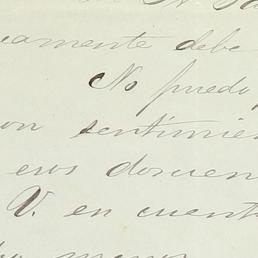 icamente debe
No puedo
on sentimien
esos docum
V. en cuent